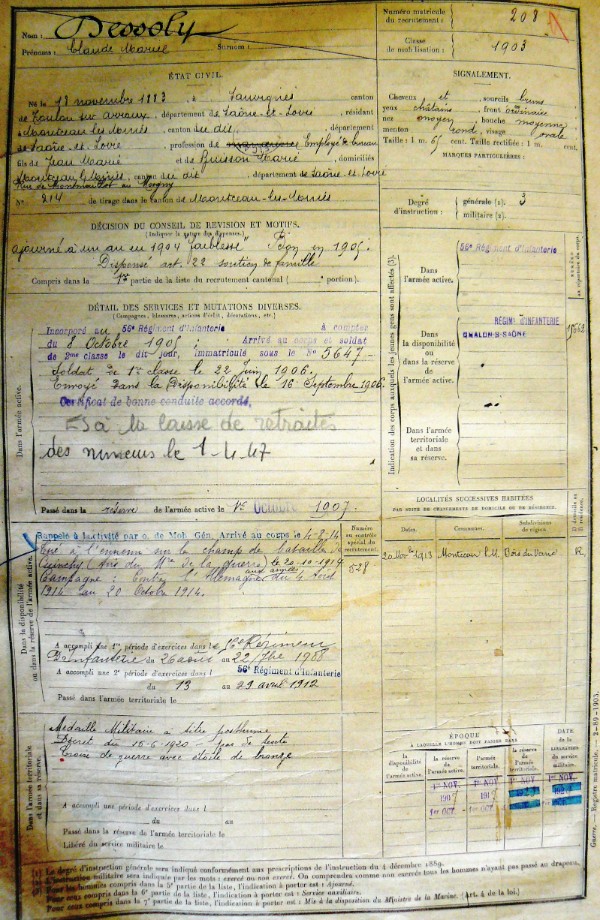 Nom : Dessoly
Prénoms : Claude Marcel Surnom :
Numéro matricule du recrutement : 208
Classe de mobilisation : 1903
ÉTAT CIVIL.
Né le 18 novembre 1883, à Sanvignes canton
de Toulon sur Arroux, département de Saône-et-Loire, résidant
à Montceau-les-Mines, canton du dit, département
de Saône et Loire, profession de Employé de bureau
fils de Jean Marie et de Buisson Marie, domiciliés
Montceau-les-Mines, canton du dit département de Saône-et-Loire
Rue de au Magny
N° 214 de tirage dans le canton de Montceau-les-Mines
SIGNALEMENT.
Cheveux et sourcils bruns
yeux châtains, front ordinaire
nez moyen, bouche moyenne
menton rond, visage ovale
Taille : 1 m. 65 cent. Taille rectifiée : 1 m. cent.
MARQUES PARTICULIÈRES :
Degré d'instruction : générale (1). 3
militaire (2).
DÉCISION DU CONSEIL DE REVISION ET MOTIFS.
(Indiquer la nature des dispenses.)
ajourné à un an en 1904 faiblesse Bon en 1905.
Dispensé art. 22 soutien de famille
Compris dans la 1re partie de la liste du recrutement cantonal ( portion).
DÉTAIL DES SERVICES ET MUTATIONS DIVERSES.
(Campagnes, blessures, actions d'éclat, décorations, etc.)
Dans l'armée active.
Incorporé au 56e Régiment d'Infanterie à compter
du 8 Octobre 1905 ; Arrivé au corps et soldat
de 2me classe le dit jour, immatriculé sous le N° 5647
Soldat de 1re classe le 22 juin 1906.
Envoyé dans la Disponibilité le 16 Septembre 1906.
Certificat de bonne conduite accordé,
à la caisse de retraites
des mineurs le 1-4-47
Passé dans la réserve de l'armée active le 1er Octobre 1907.
Indication des corps auxquels les jeunes gens sont affectés (3).
Dans l'armée active.
56e Régiment d'Infanterie
Dans la disponibilité ou dans la réserve de l'armée active.
RÉGIMT D'INFANTERIE
CHALON-S-SAÔNE
Dans l'armée territoriale et dans sa réserve.
LOCALITÉS SUCCESSIVES HABITÉES
PAR SUITE DE CHANGEMENTS DE DOMICILE OU DE RÉSIDENCE.
Dates. Communes. Subdivisions de région.
20 1913 Montceau l. M. Bois du Verne R.
Dans la disponibilité ou dans la réserve de l'armée active.
Rappelé à l'activité par o. de Mob. Gén. Arrivé au corps le 4-8-14
Tué à l'ennemi sur le champ de bataille de
(Avis du Mre de la guerre) le 20-10-1914
Campagne : contre l'Allemagne du 4 Août
1914 au 20 Octobre 1914.
Numéro au contrôle spécial du recrutement.
528
A accompli une 1re période d'exercices dans le Régiment
d'Infanterie du 26 août au 22 7bre 1908
A accompli une 2e période d'exercices dans l 56e Régiment d'Infanterie
du 13 au 29 avril 1912
Passé dans l'armée territoriale le
Dans l'armée territoriale et dans sa réserve.
Médaille Militaire à titre posthume
Décret du 15-6-1920
Croix de guerre avec étoile de bronze
A accompli une période d'exercices dans l
du au
Passé dans la réserve de l'armée territoriale le
Libéré du service militaire le
ÉPOQUE
À LAQUELLE L'HOMME DOIT PASSER DANS
la disponibilité de l'armée active. la réserve de l'armée active. l'armée territoriale. la réserve de l'armée territoriale.
DATE de la LIBÉRATION du service militaire.
1er NOV. 1er NOV.
1er OCT. 1er OCT.
Guerre. — Registre matricule. — 2-89-1903.
(1) Le degré d'instruction générale sera indiqué conformément aux prescriptions de l'instruction du 4 décembre 1889.
(2) L'instruction militaire sera indiquée par les mots : exercé ou non exercé. On comprendra comme non exercés tous les hommes n'ayant pas passé au drapeau.
(3) Pour les hommes compris dans la 5e partie de la liste, l'indication à porter est : Ajourné.
Pour ceux compris dans la 6e partie de la liste, l'indication à porter est : Service auxiliaire.
Pour ceux compris dans la 7e partie de la liste, l'indication à porter est : Mis à la disposition du Ministre de la Marine. (Art. 4 de la loi.)